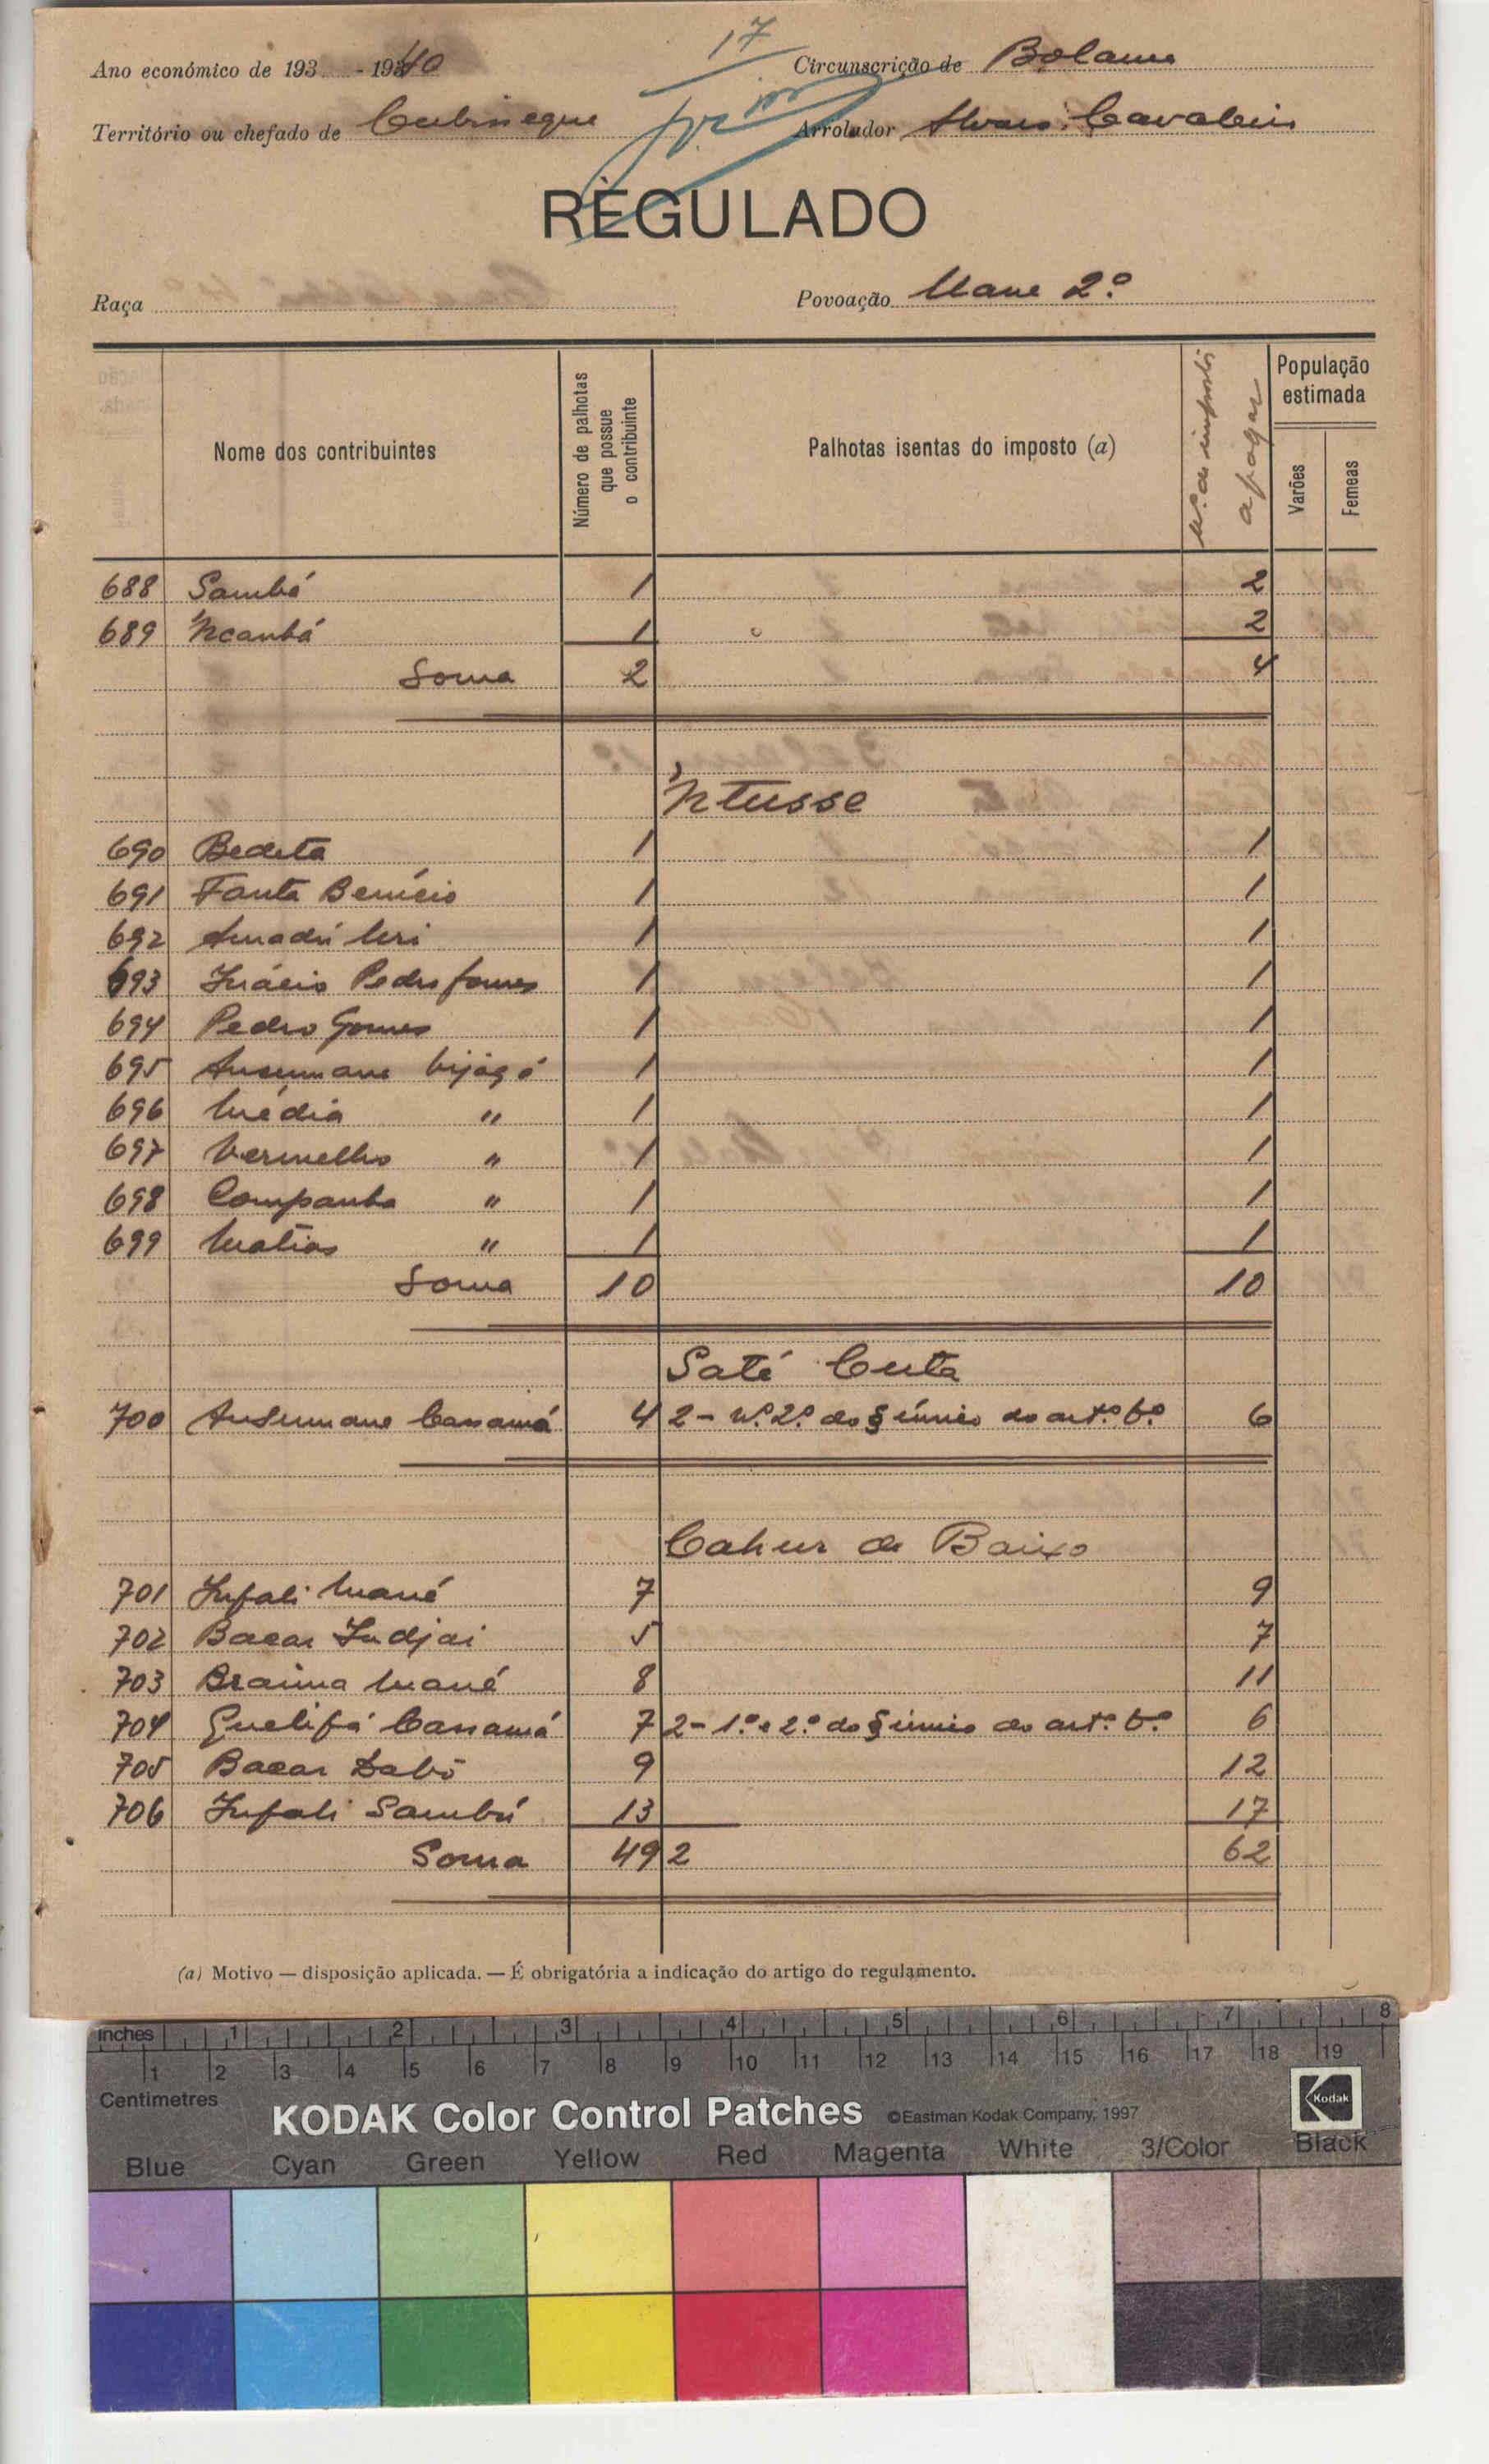 17
Ano económico de 193 - 1940 Circunscrição de Bolama
Território ou chefado de Cubisseque Arrolador Alvaro Cavaleiro
REGULADO
Raça Povoação Uane 2.º
Nome dos contribuintes
Número de palhotas que possue o contribuinte
Palhotas isentas do imposto (a)
N.º de impostos a pagar
População estimada
Varões
Femeas
688 Sambá 1 2
689 'Ncanhá 1 2
Soma 2 4
'Ntusse
690 Bedeta 1 1
691 Fanta Benício 1 1
692 Amadú 1 1
693 Inácio Pedro Gomes 1 1
694 Pedro Gomes 1 1
695 Ansumane bijagó 1 1
696 Média " 1 1
697 Vermelho " 1 1
698 Companha " 1 1
699 Matias " 1 1
Soma 10 10
Saté Cuta
700 Ansumane Cassamá 4 2 - n.º 2.º do § único do art.º 6.º 6
Cahur de Baixo
701 Infali Mané 7 9
702 Bacar Indjai 5 7
703 Braima Mané 8 11
704 Quelifá Cassamá 7 2 - 1.º e 2.º do § único do art.º 6.º 6
705 Bacar Dabó 9 12
706 Infali Sambú 13 17
Soma 49 2 62
(a) Motivo — disposição aplicada. — É obrigatória a indicação do artigo do regulamento.
inches 1 2 3 4 5 6 7 8
1 2 3 4 5 6 7 8 9 10 11 12 13 14 15 16 17 18 19
Centimetres
KODAK Color Control Patches ©Eastman Kodak Company, 1997 Kodak
Blue Cyan Green Yellow Red Magenta White 3/Color Black